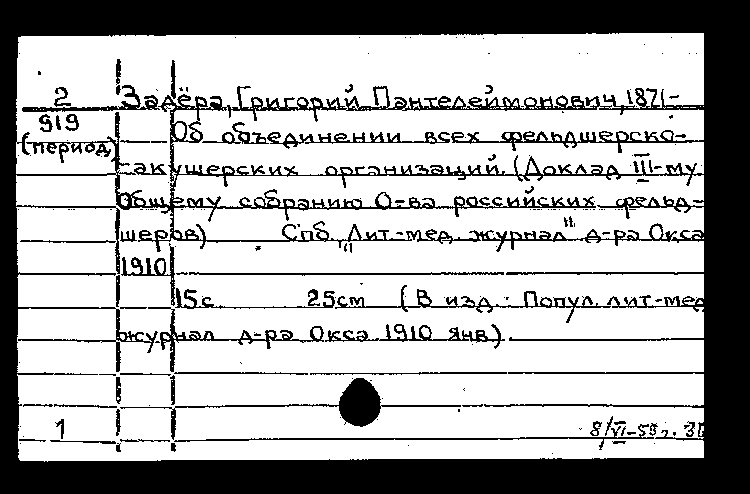 2 Задёра, Григорий Пантелеймонович, 1871-
919 Об объединении всех фельдшерско-
(период) -акушерских организаций. (Доклад III-му
Общему собранию О-ва российских фельд-
шеров) Спб, "Лит.-мед. журнал" д-ра Окса
1910
15с 25см (В изд.: Попул. лит-мед
журнал д-ра Окса 1910 янв).
1 8/VI-59г.